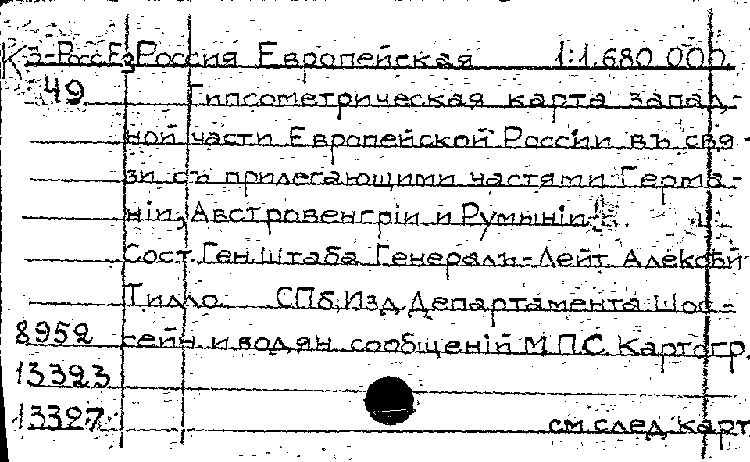 К з-РоссЕз Россия Европейская 1:1.680 000.
49 Гипсометрическая карта запад-
ной части Европейской России въ свя-
зи съ прилегающими частями Герма-
нiи, Австровенгрiи и Румынiи.
Сост. Ген. Штаба Генералъ-Лейт. Алексѣй
Тилло. СПб. Изд. Департамента Шос-
8952 сейн. и водян. сообщенiй М.П.С. Картогр.
13323
13327 см. след. карт